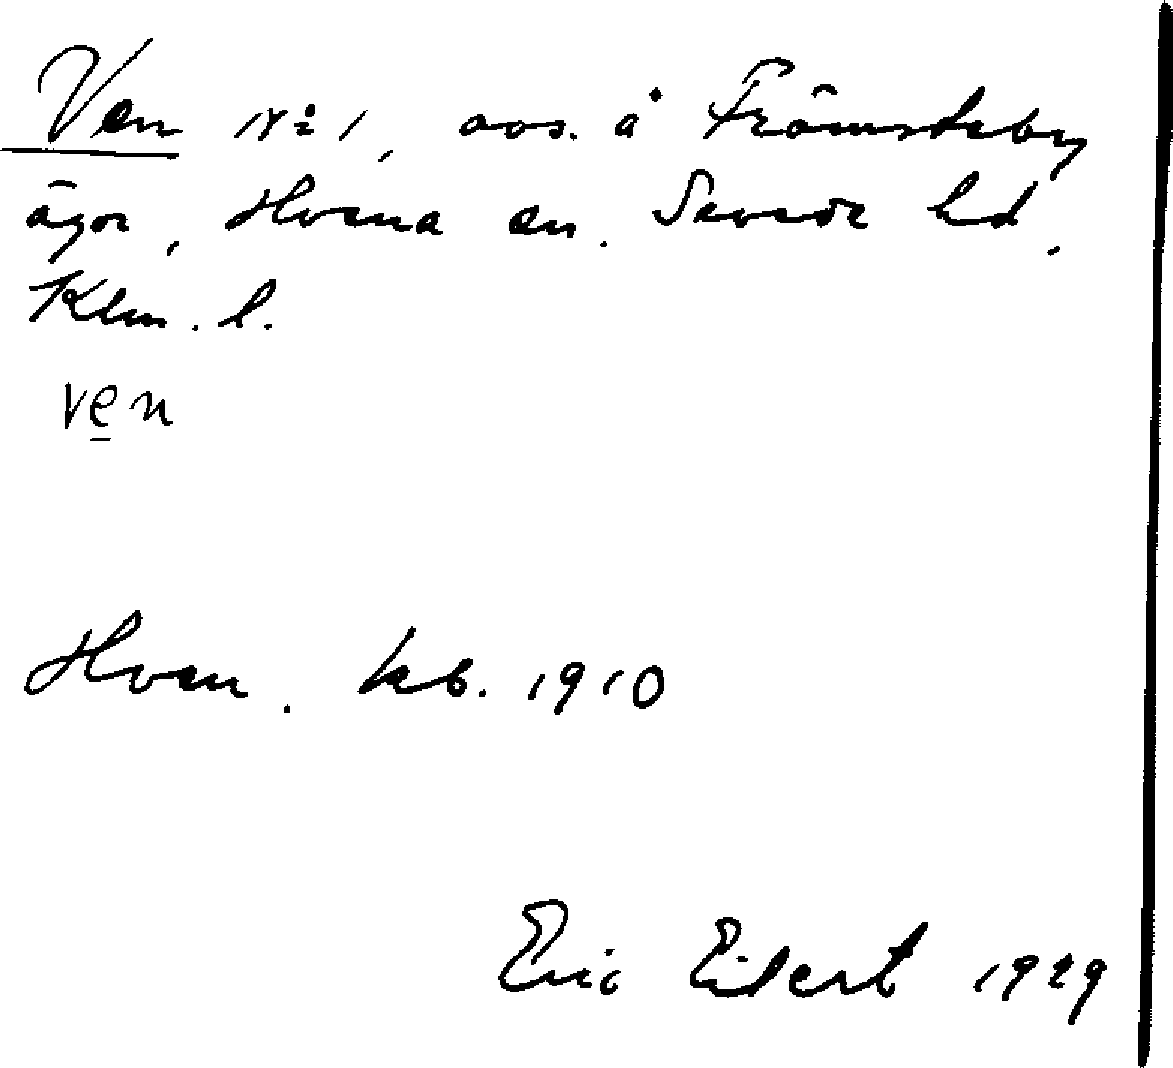 Ven No 1, avs. å Frömsteby
ägor, Hvena sn. Sevede hd.
Klm. l.
ven
Hven. kb. 1910
Eric Eilert 1929